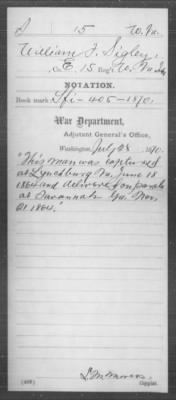 S 15 W. Va.
William F. Sigley,
Co. E, 15 Reg't W. Va. Inf.
NOTATION.
Book mark: 405-1890.
War Department,
Adjutant General's Office,
Washington, July 28, 1890.
"This man was captured
at Lynchburg Va. June 18
1864 and delivered on parole
at Savannah Ga. Nov.
21 1864."
(409) Copyist.